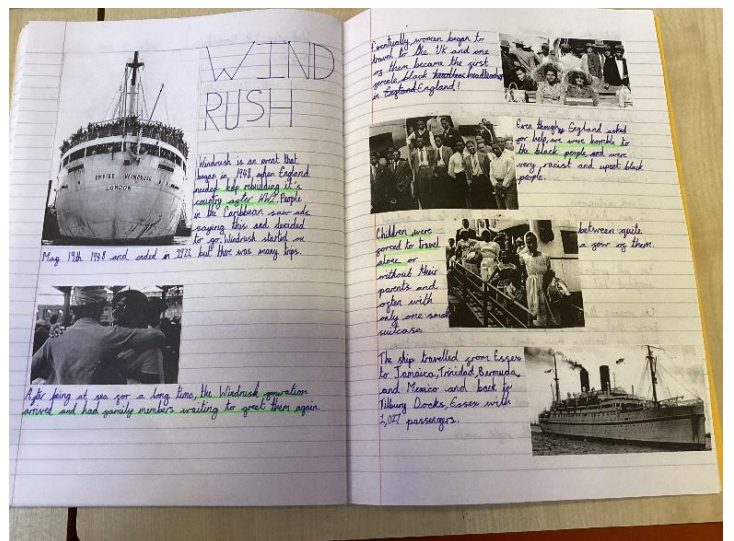 WIND
RUSH
EMPIRE WINDRUSH
LONDON
Windrush is an event that
began in 1948 when England
needed help rebuilding it's
country after WW2. People
in the Caribbean saw ads
saying this and decided
to go. Windrush started on
May 19th 1948 and ended in 1971 but there was many trips.
After being at sea for a long time, the Windrush generation
arrived and had family members waiting to greet them again.
Eventually women began to
travel to the UK and one
of them became the first
female black headteacher
in England!
Even though England asked
for help, are were horrible to
the black people and were
very racist and upset black
people.
Children were
forced to travel
alone or
without their
parents and
often with
only one small
suitcase
between quite
a few of them.
The ship travelled from Essex
to Jamaica, Trinidad, Bermuda,
and Mexico and back to
Tilbury Docks, Essex with
1,027 passengers.